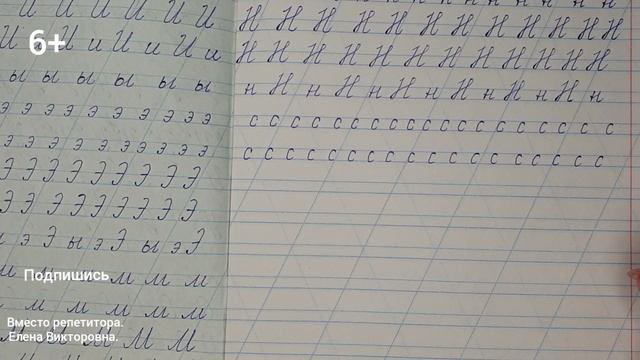 И И И И И И
И И и И и И и
ы ы ы ы ы ы
э э э э э э э э э э
э э э э э э э э э
Э Э Э Э Э Э Э Э Э
Э Э Э Э Э Э Э Э
э Э ы э Э ы э Э
м м м м м
м м м м м
М М М М М
Н Н Н Н Н Н Н Н Н Н Н
Н Н Н Н Н Н Н Н Н Н Н
н Н н Н н Н н Н н Н н Н н
с с с с с с с с с с с с с с с с с с с с с
с с с с с с с с с с с с с с с с с с с
6+
Подпишись
Вместо репетитора.
Елена Викторовна.